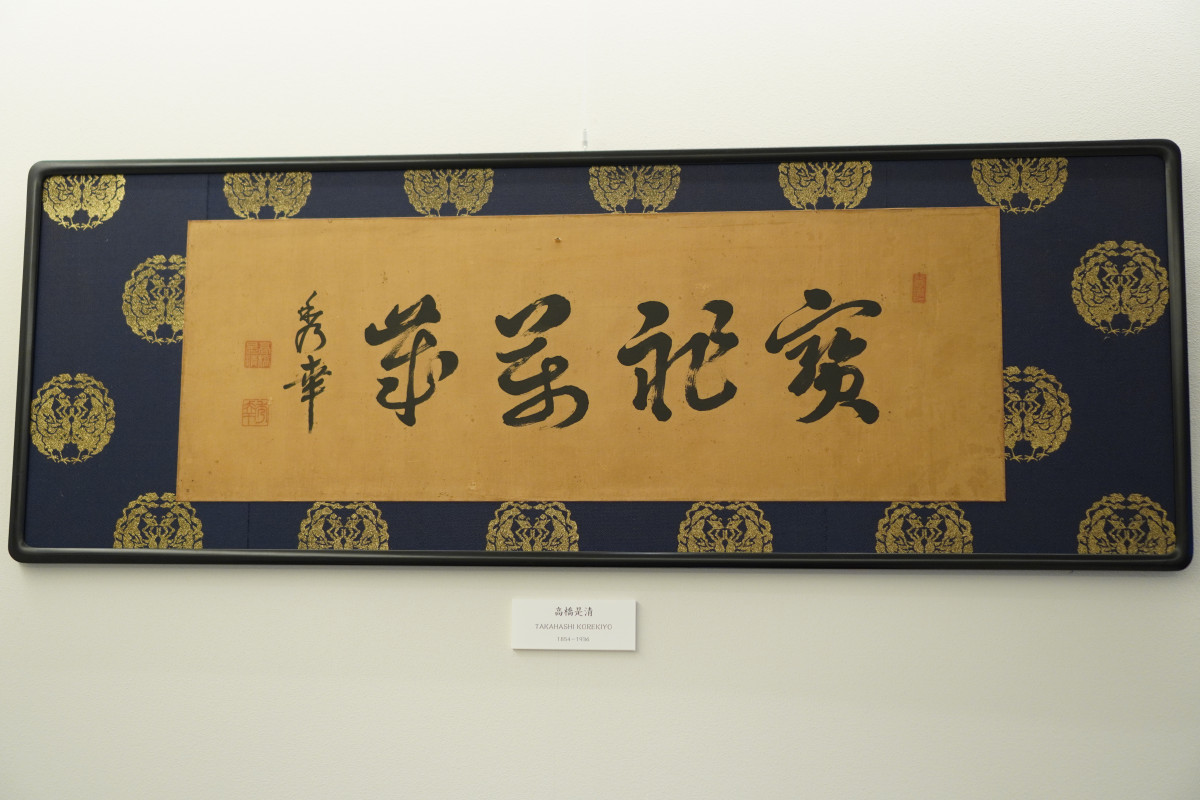 寶祚萬歳
高橋是清
TAKAHASHI KOREKIYO
1854-1936